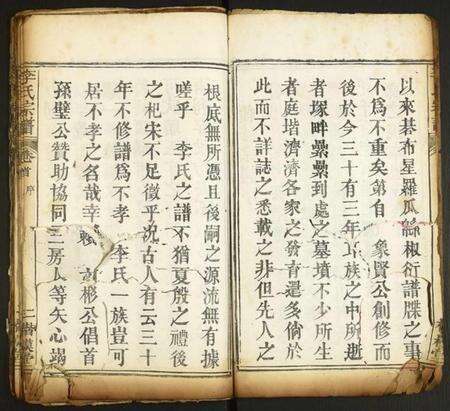 以來棊布星羅瓜緜椒衍譜牒之事
不為不重矣弟自 象賢公創修而
後於今三十有三年 族之中所逝
者塚畔纍纍到處之墓墳不少所生
者庭堦濟濟各家之發育還多倘於
此而不詳誌之悉載之非但先人之
根底無所憑且後嗣之源流無有據
嗟乎 李氏之譜不猶夏殷之禮後
之杞宋不足徵乎况古人有云三十
年不修譜為不孝 李氏一族豈可
居不孝之名哉幸 彬公倡首
孫璧公贊助協同二房人等矢心竭
李氏宗譜 卷首 序 二